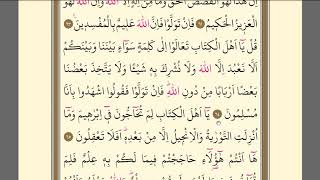 اِنَّ هٰذَا لَهُوَ الْقَصَصُ الْحَقُّ وَمَا مِنْ اِلٰهٍ اِلَّا اللّٰهُ وَاِنَّ اللّٰهَ لَهُوَ
الْعَزِيزُ الْحَكِيمُ ﴿٦٢﴾ فَاِنْ تَوَلَّوْا فَاِنَّ اللّٰهَ عَلِيمٌ بِالْمُفْسِدِينَ ﴿٦٣﴾
قُلْ يَٓا اَهْلَ الْكِتَابِ تَعَالَوْا اِلٰى كَلِمَةٍ سَوَٓاءٍ بَيْنَنَا وَبَيْنَكُمْ
اَلَّا نَعْبُدَ اِلَّا اللّٰهَ وَلَا نُشْرِكَ بِهِ شَيْـًٔا وَلَا يَتَّخِذَ بَعْضُنَا
بَعْضًا اَرْبَابًا مِنْ دُونِ اللّٰهِ فَاِنْ تَوَلَّوْا فَقُولُوا اشْهَدُوا بِاَنَّا
مُسْلِمُونَ ﴿٦٤﴾ يَٓا اَهْلَ الْكِتَابِ لِمَ تُحَٓاجُّونَ فِٓي اِبْرٰهِيمَ وَمَٓا
اُنْزِلَتِ التَّوْرٰيةُ وَالْاِنْجِيلُ اِلَّا مِنْ بَعْدِهِ اَفَلَا تَعْقِلُونَ ﴿٦٥﴾
هَٓا اَنْتُمْ هٰٓؤُ۬لَٓاءِ حَاجَجْتُمْ فِيمَا لَكُمْ بِهِ عِلْمٌ فَلِمَ